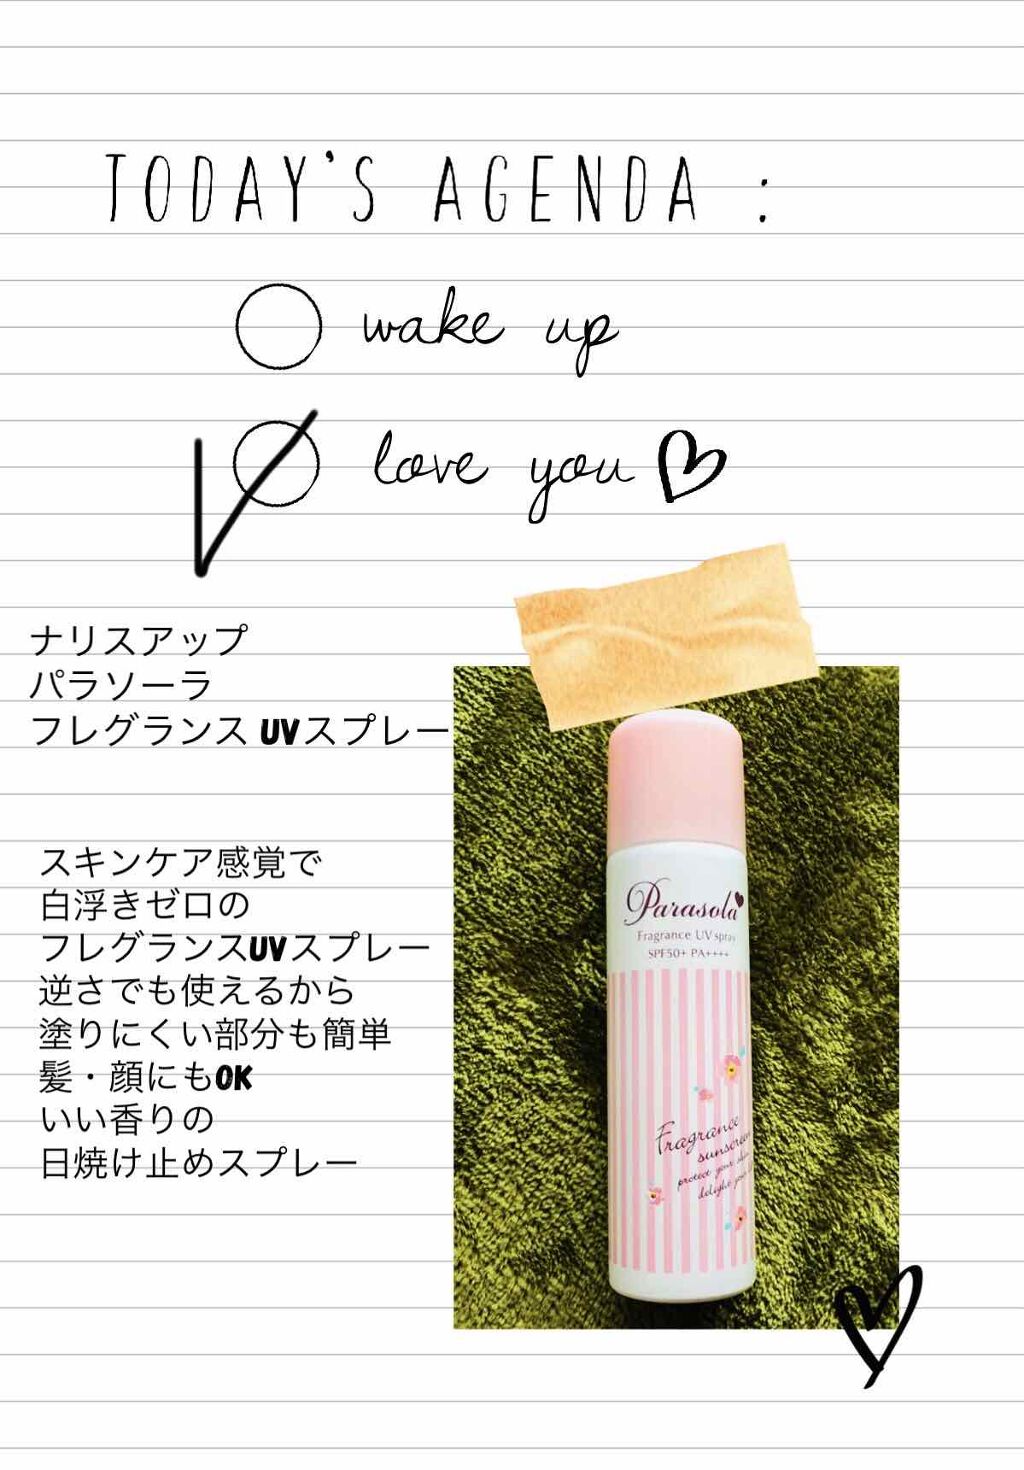 TODAY'S AGENDA :
wake up
love you
ナリスアップ
パラソーラ
フレグランス UVスプレー
スキンケア感覚で
白浮きゼロの
フレグランスUVスプレー
逆さでも使えるから
塗りにくい部分も簡単
髪・顔にもOK
いい香りの
日焼け止めスプレー
Parasola
Fragrance UV spray
SPF50+ PA++++
Fragrance
sunscreen
protect your
delight your